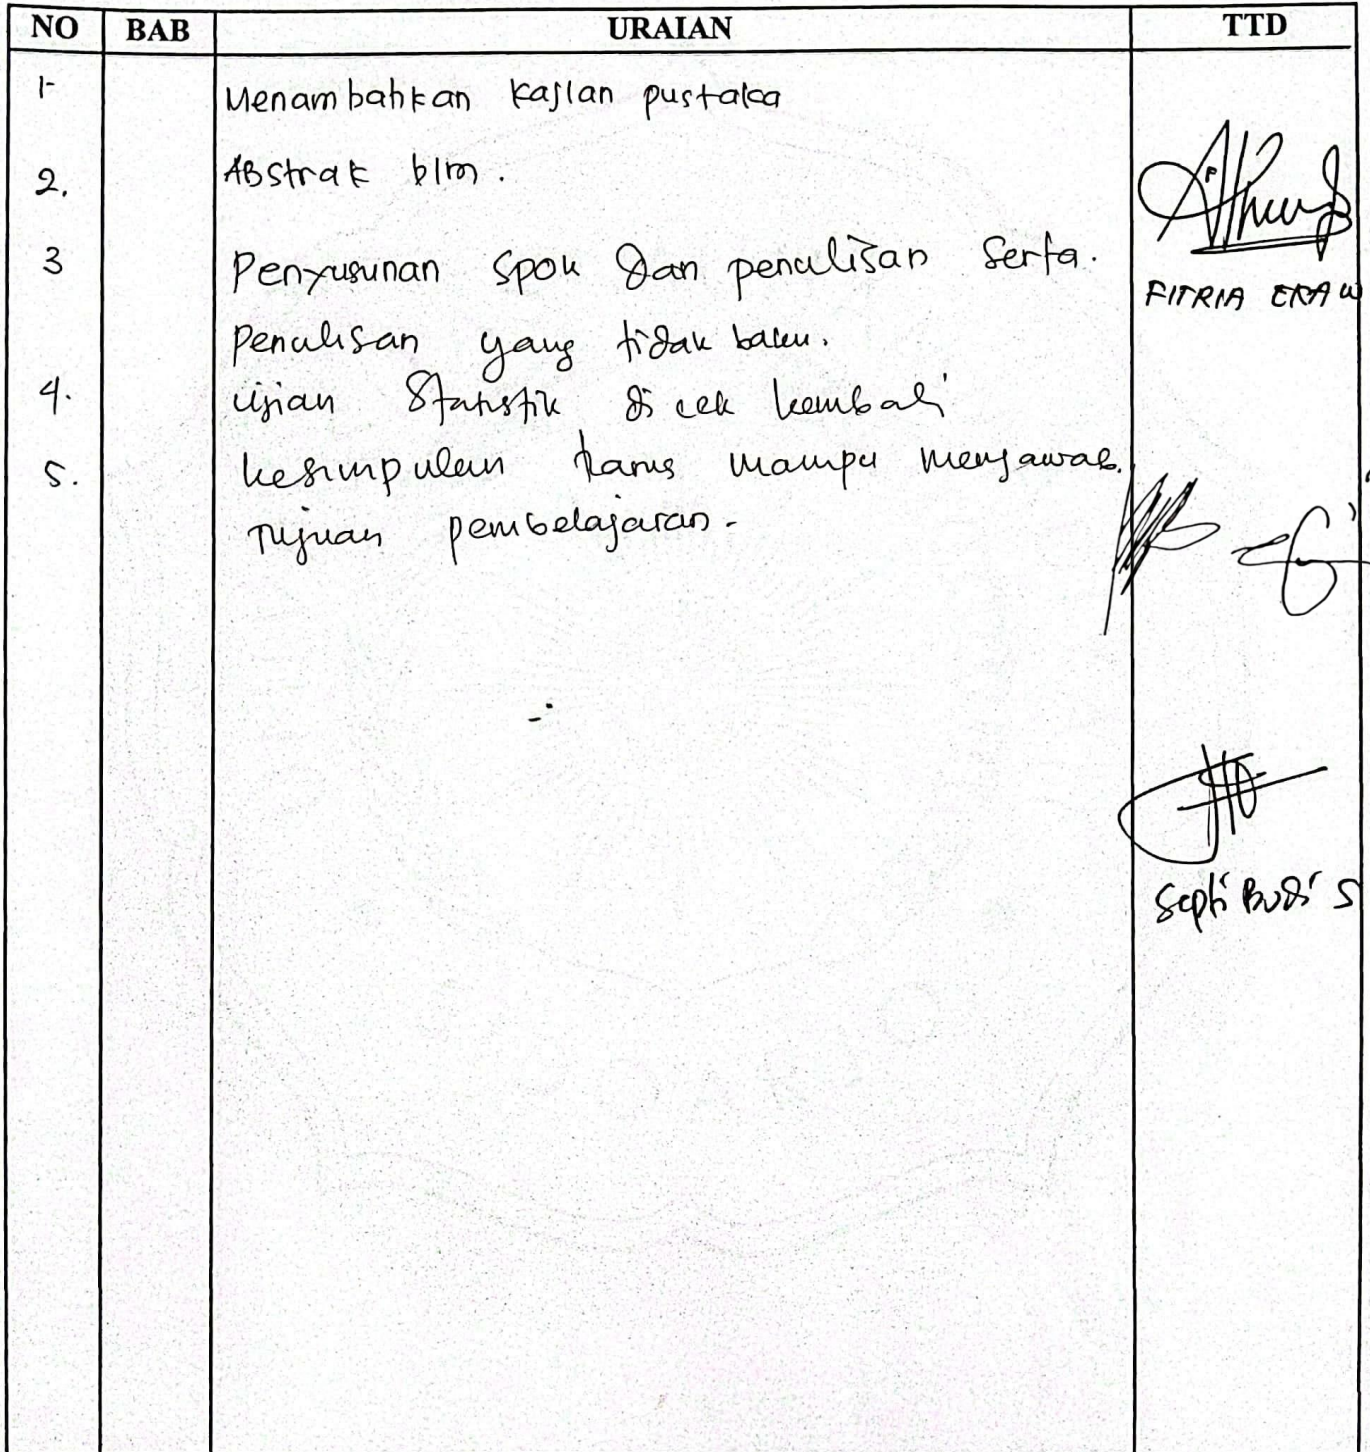 NO BAB URAIAN TTD
1- Menambahkan kajian pustaka
2. ABstrak blm.
3 Penyusunan spok dan penulisan serta.
penulisan yang tidak baku.
4. Ujian Statistik di cek kembali
5. kesimpulan harus mampu menjawab.
Tujuan pembelajaran.
FITRIA EKA W
Septi Budi S